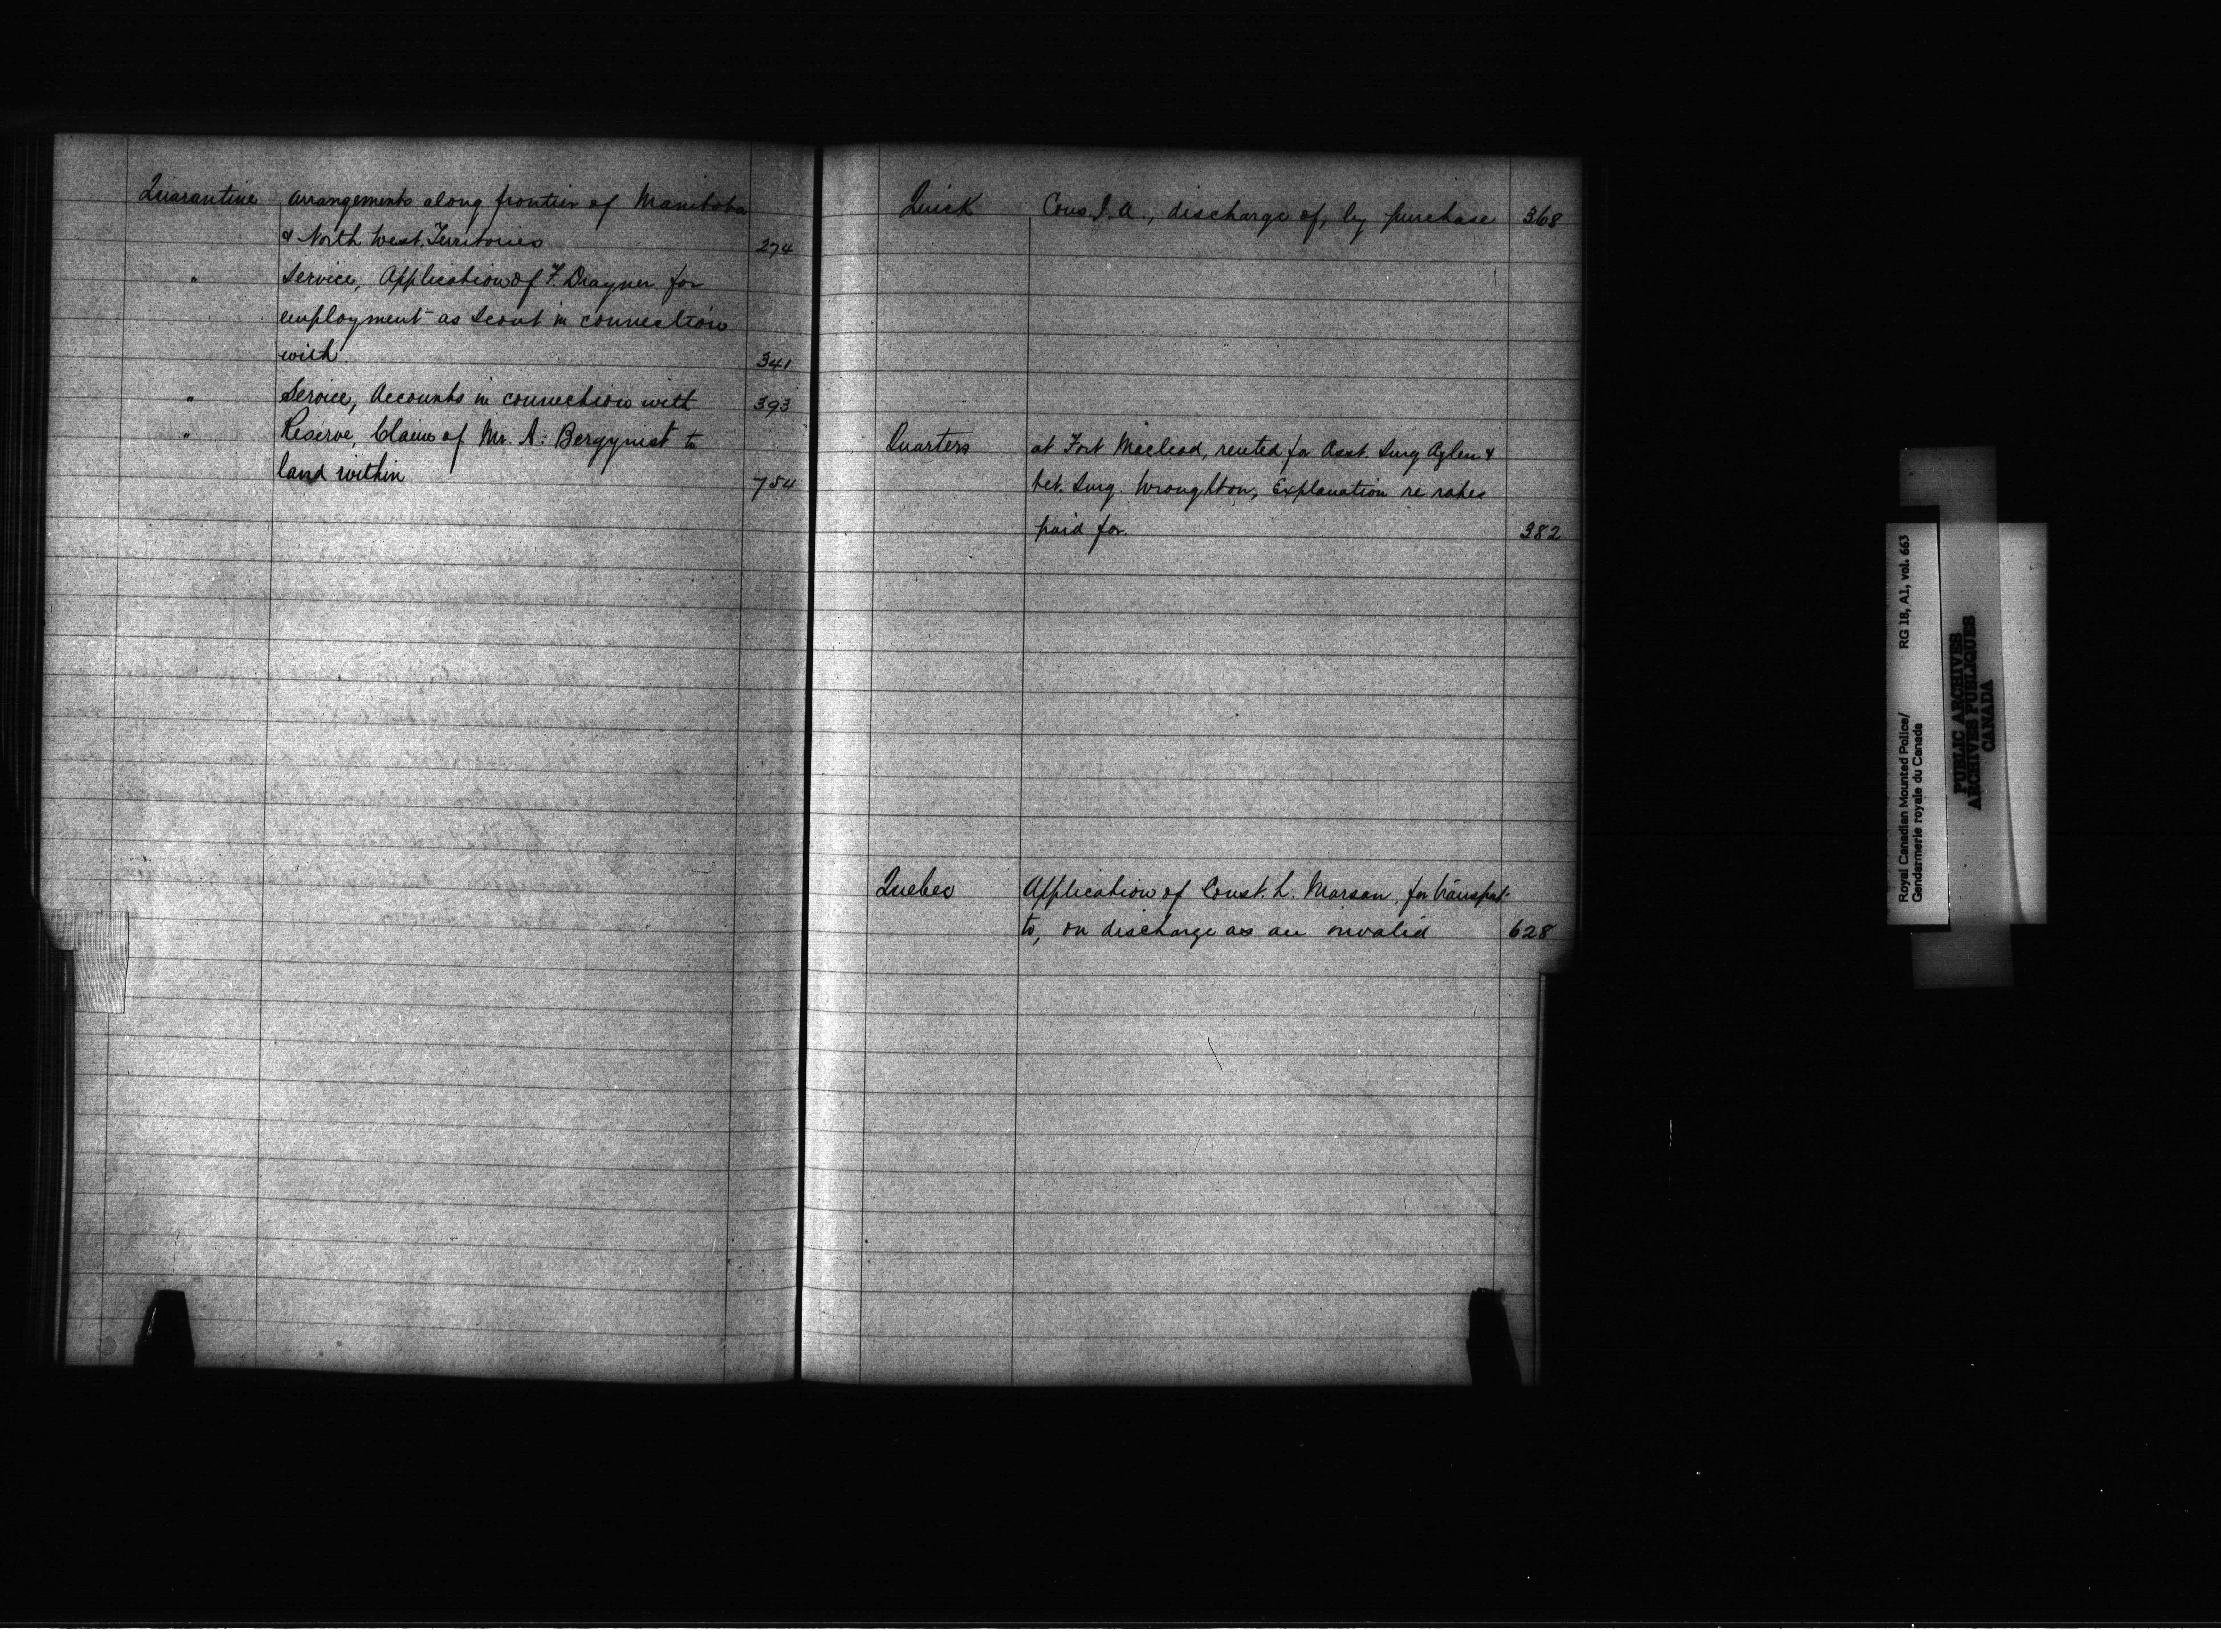 Quarantine arrangements along frontier of Manitoba
& North West Territories 274
" Service, Application of F. Drayner for
employment as Scout in connection
with. 341
" Service, Accounts in connection with 393
" Reserve, Claim of Mr. A. Bergquist to
land within 754
Quick Cons. J. A., discharge of, by purchase 368
Quarters at Fort Macleod, rented for Asst. Surg. Aylen &
Vet. Surg. Wroughton, Explanation re rates
paid for. 382
Quebec Application of Const. L. Marsan, for transpot.
to, on discharge as an invalid 628
Royal Canadian Mounted Police/
Gendarmerie royale du Canada
RG 18, A1, vol. 663
PUBLIC ARCHIVES
ARCHIVES PUBLIQUES
CANADA